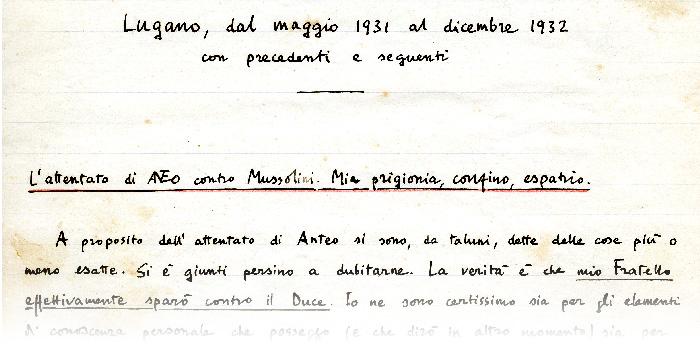 Lugano, dal maggio 1931 al dicembre 1932
con precedenti e seguenti
L'attentato di ANEO contro Mussolini. Mia prigionia, confino, espatrio.
A proposito dell'attentato di Anteo si sono, da taluni, dette delle cose più o
meno esatte. Si è giunti persino a dubitarne. La verità è che mio Fratello
effettivamente sparò contro il Duce. Io ne sono certissimo sia per gli elementi
di conoscenza personale che posseggo (e che dirò in altro momento) sia per